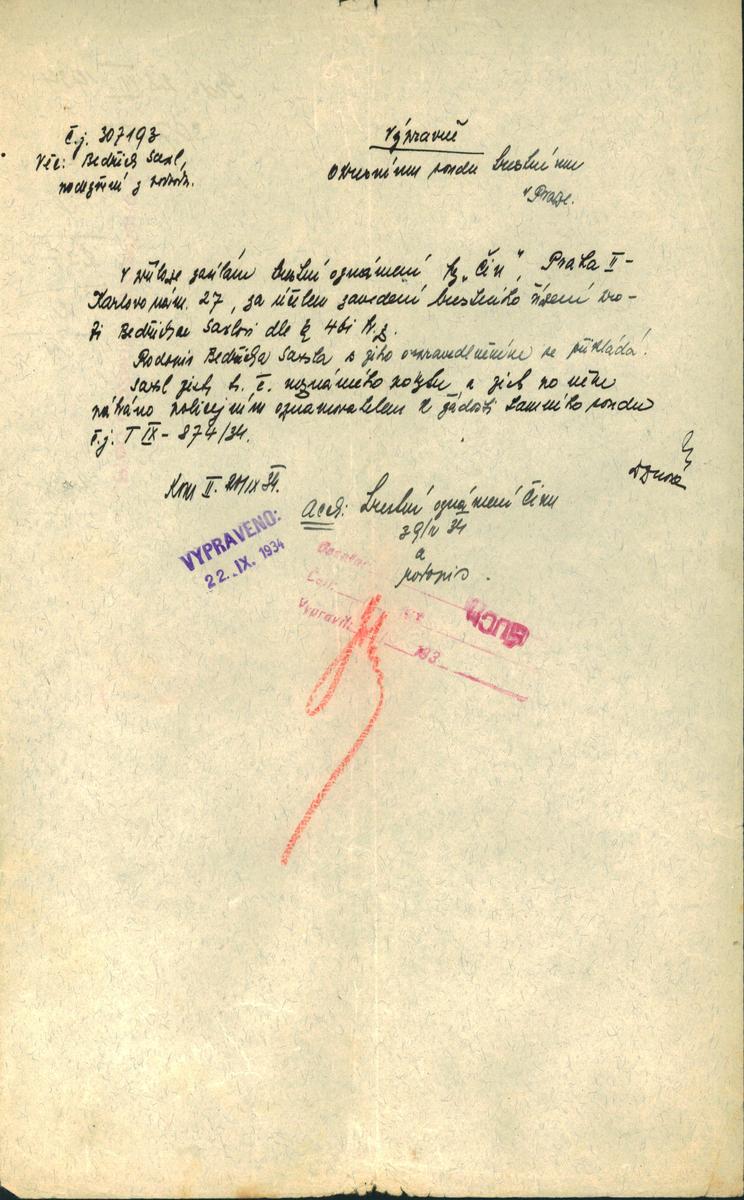 Č.j. 307193
Věc: Bedřich Saxl,
podezření z podvodu.
Výpravně
Okresnímu soudu trestnímu
v Praze.
V příloze zasílám trestní oznámení fy „Čin", Praha II-
Karlovo nám. 27, za účelem zavedení trestního řízení pro-
ti Bedřichu Saxlovi dle § 461 tr.z.
Podpis Bedřicha Saxla s jeho ospravedlněním se přikládá.
Saxl jest t. č. neznámého pobytu a jest po něm
pátráno policejním oznamovatelem k žádosti tamního soudu
č.j. T IX - 874/34.
Kom II. 20/IX 34.
Accl: Trestní oznámení Činu
z 9/V 34
a
VYPRAVENO:
22. IX. 1934
Četl:
Vypravil:
193